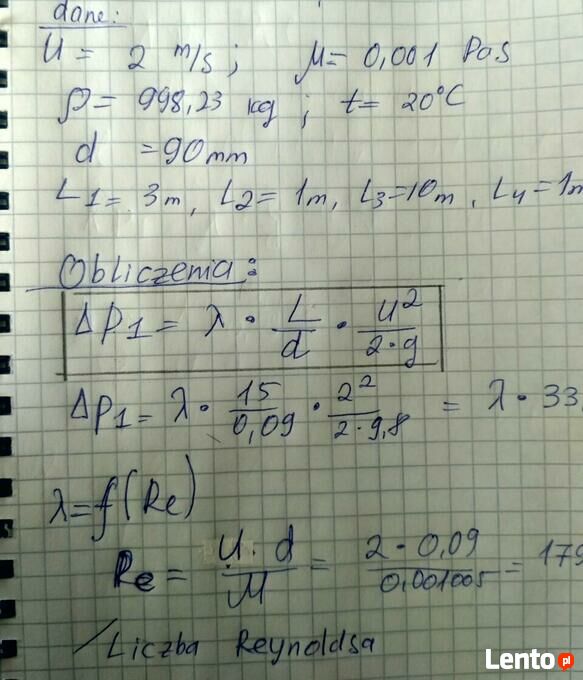 dane:
U = 2 m/s ; μ = 0,001 Pas
ρ = 998,23 kg ; t = 20°C
d = 90mm
L1 = 3m, L2 = 1m, L3 = 10m, L4 = 1m
Obliczenia:
Δp1 = λ · L/d · u²/2·g
Δp1 = λ · 15/0,09 · 2²/2·9,8 = λ · 33
λ = f(Re)
Re = u·d/μ = 2·0,09/0,001005 = 179
Liczba Reynoldsa
Lento.pl